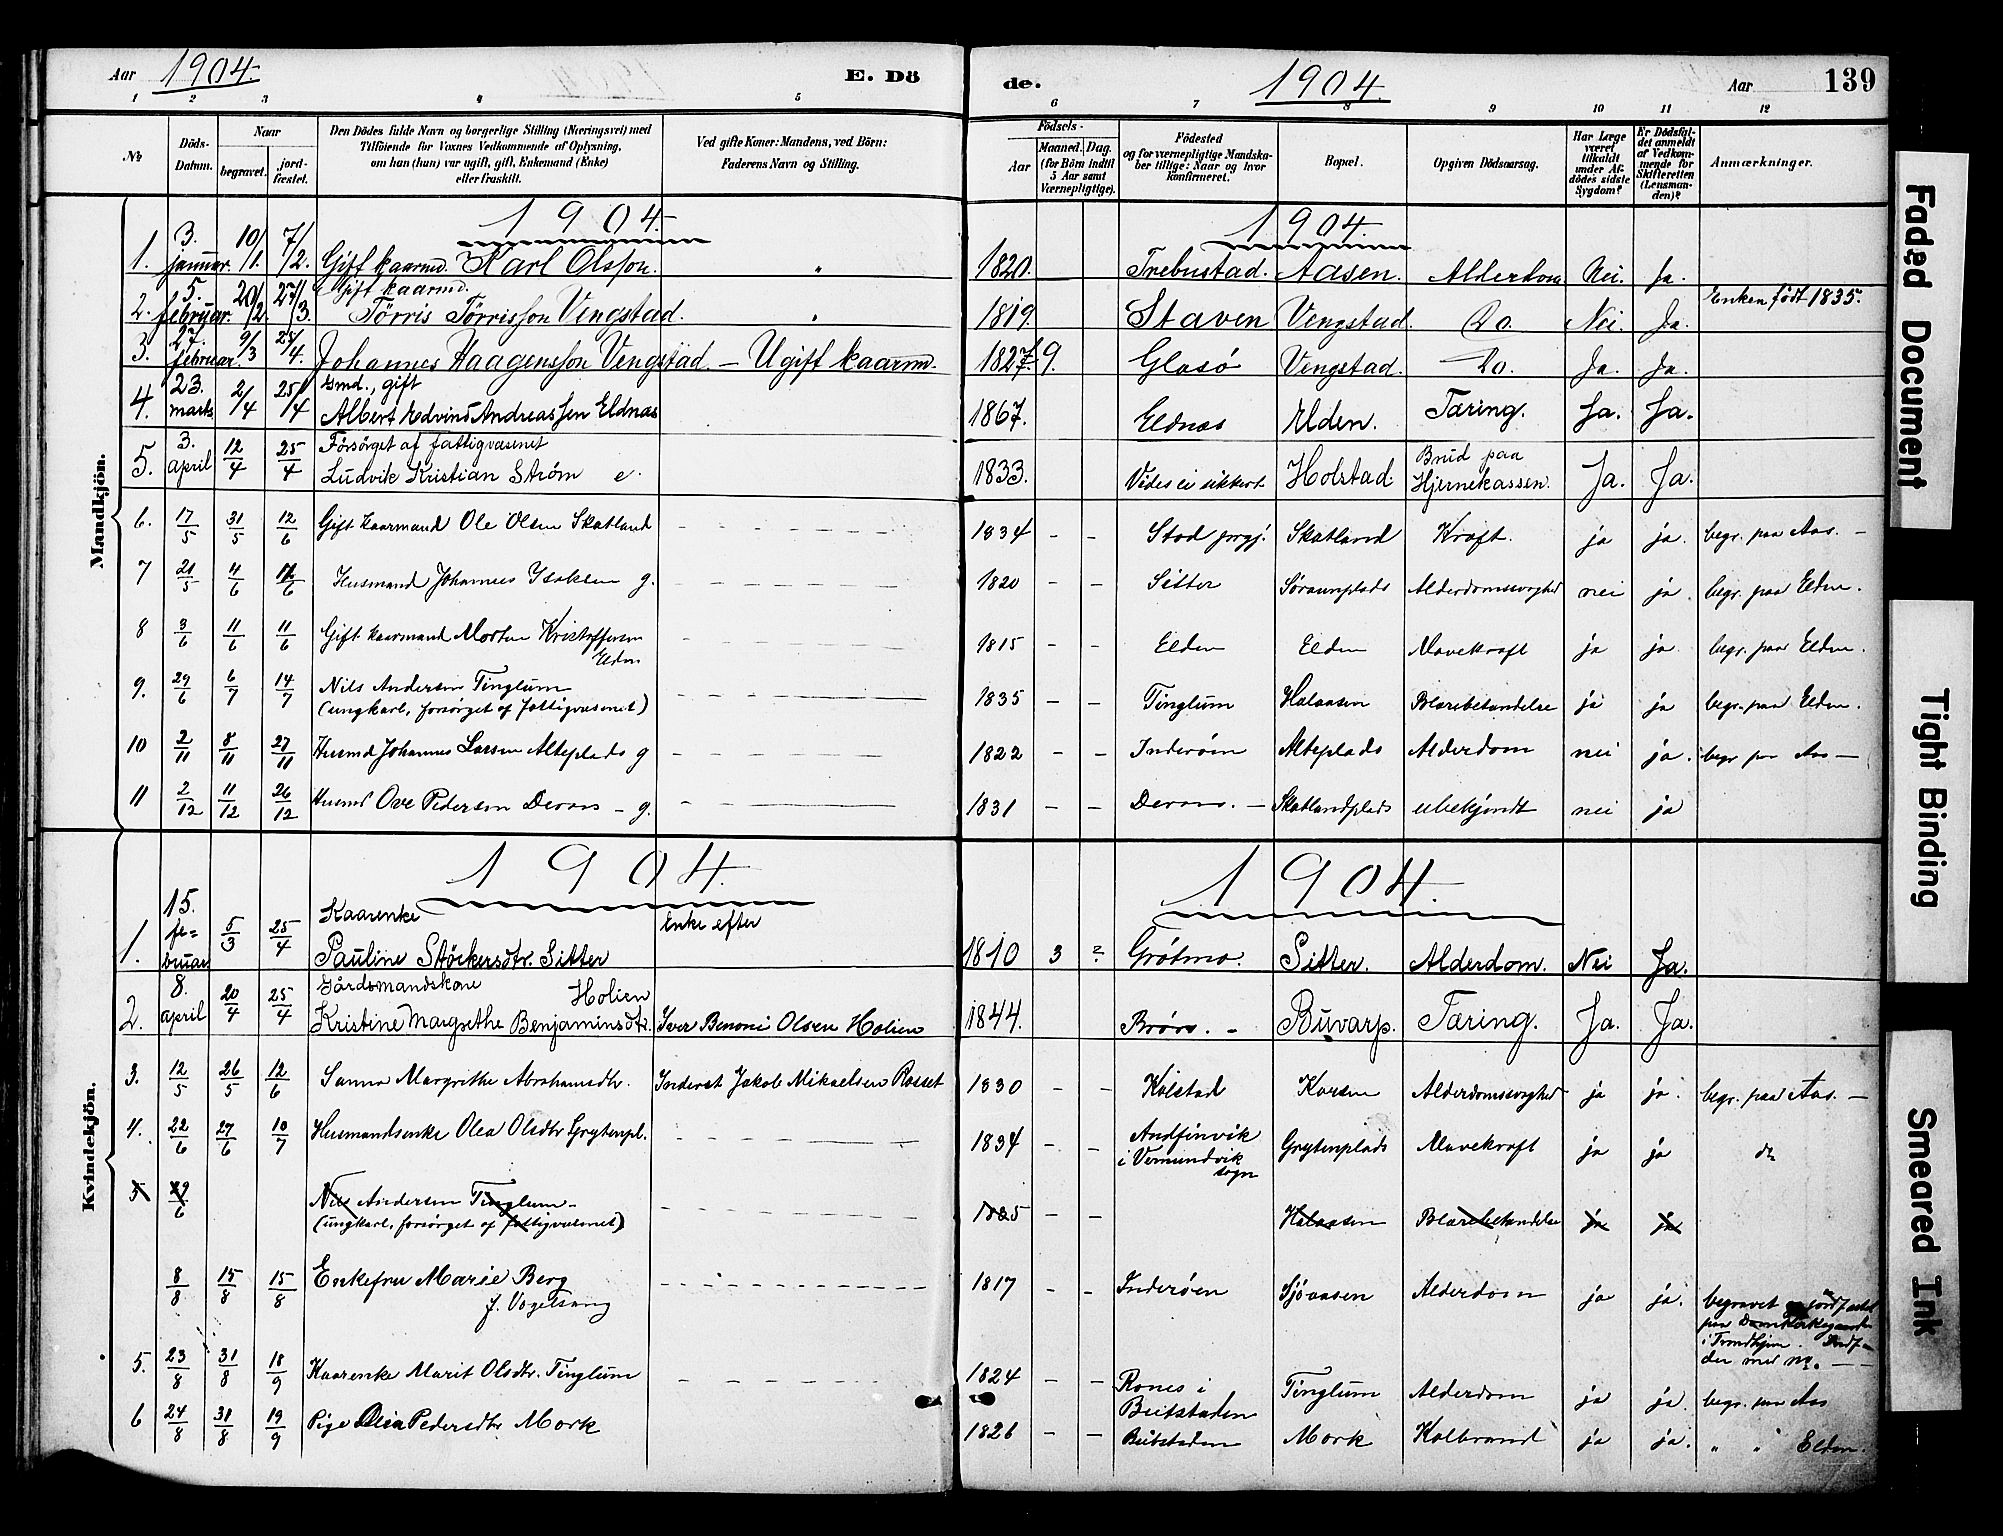 Aar 1904. E. Dö de. 1904. Aar 139
1 2 3 4 5 6 7 8 9 10 11 12
№
Döds-Datum.
Naar
begravet. jordfæstet.
Den Dödes fulde Navn og borgerlige Stilling (Næringsvei) med
Tilföiende for Voxnes Vedkommende af Oplysning,
om han (hun) var ugift, gift, Enkemand (Enke)
eller fraskilt.
Ved gifte Koner: Mandens, ved Börn:
Faderens Navn og Stilling.
Födsels-
Aar
Maaned. Dag.
(for Börn indtil
5 Aar samt
Værnepligtige).
Födested
og for værnepligtige Mandska-
ber tillige: Naar og hvor
konfirmeret.
Bopæl.
Opgiven Dödsaarsag.
Har Læge
været
tilkaldt
under Af-
dödes sidste
Sygdom?
Er Dödsfal-
det anmeldt
af Vedkom-
mende for
Skifteretten
(Lensman-
den)?
Anmærkninger.
Mandkjön.
1904. 1904.
1. 3. januar. 10/1. 7/2. Gift kaarmd. Karl Olsson. " 1820. Trebustad. Aasen. Alderdom Nei. Ja.
2. 5. februar. 20/2. 27/3. Gift kaarmd. Enken født 1835.
Törris Törrisson Vengstad. " 1819. Staven Vengstad. Do. Nei. Ja.
3. 27. februar. 9/3 25/4. Johannes Haagensson Vengstad. — Ugift kaarmd. 1827. 9. Glasö Vengstad. Do. Ja. Ja.
4. 23. marts 2/4 25/4 Gmd., gift
Albert Edvind Andreassen Eldnas 1867. Eldnas Elden. Tæring. Ja. Ja.
5. 3. april 12/4 25/4 Försörget af fattigvæsenet
Ludvik Kristian Ström e. 1833. Vides ei sikkert Holstad. Brud paa Hjernekassen. Ja. Ja.
6. 17/5 31/5 12/6 Gift kaarmand Ole Olsen Skatland 1834 - - Stod prgj. Skatland Kræft. ja ja. begr. paa Aas. —
7 21/5 4/6 12/6 Husmand Johannes Isaksen g. 1820 - - Sitter Söraunplads Alderdomssvaghed nei ja. begr. paa Elden.
8 3/6 11/6 11/6 Gift kaarmand Morten Kristoffersen
Elden 1815 - - Elden Elden Mavekræft ja ja. begr. paa Elden.
9. 29/6 6/7 14/7 Nils Andersen Tinglum
(ungkarl, forsörget af fattigvæsenet) 1835 - - Tinglum Halaasen Blærebetændelse ja ja begr. paa Elden.
10 2/11 8/11 27/11 Husmd Johannes Larsen Alteplads g 1822 - - Inderöen Alteplads Alderdom nei ja. begr paa Aas —
11 2/12 11/12 26/12 Husmd Ove Pedersen Devaas - g. 1831 - - Devaas. - Skatlandplads ubekjendt nei ja
Kvindekjön.
1904. 1904.
1. 15. februar 5/3 25/4 Kaarenke Enke efter
Pauline Störkersdtr. Sitter 1810 3 ? Grötmo. Sitter. Alderdom. Nei Ja.
2. 8. april 20/4 25/4 Gårdsmandskone Holien
Kristine Margrethe Benjaminsdtr. Iver Benoni Olsen Holien 1844. Buvarp. Tæring. Ja. Ja.
3. 12/5 26/5 12/6 Sanna Margrithe Abrahamsdtr. Inderst Jakob Mikaelsen Rosset 1830 - Kolstad Korsen Alderdomssvaghed ja ja. begr. paa Aas. —
4. 22/6 27/6 10/7 Husmandsenke Olea Olsdtr Grytenpl. 1834 - - Andfinvik
i Vemundvik
sogn Grytenplads Mavekræft ja ja do
5 29/6 Nils Andersen Tinglum
(ungkarl, forsörget af fattigvæsenet) 1835 - - Halaasen Blærebetændelse ja ja
8/8 15/8 15/8 Enkefru Marie Berg
f. Vogelsang 1817 - - Inderöen Sjöaasen Alderdom ja ja. begravet og jordfæstet
paa Domkirkegaarden
i Trondhjem.
5. 23/8 31/8 18/9 Kaarenke Marit Olsdtr. Tinglum 1824 - - Rones i
Beitstaden Tinglum Alderdom ja ja. begr. paa Aas
6 24/8 31/8 19/9 Pige Olea Pedersdtr Mork 1826 - - Beitstaden Mork Kolbrand ja ja. " " Elden.
Faded Document
Tight Binding
Smeared Ink